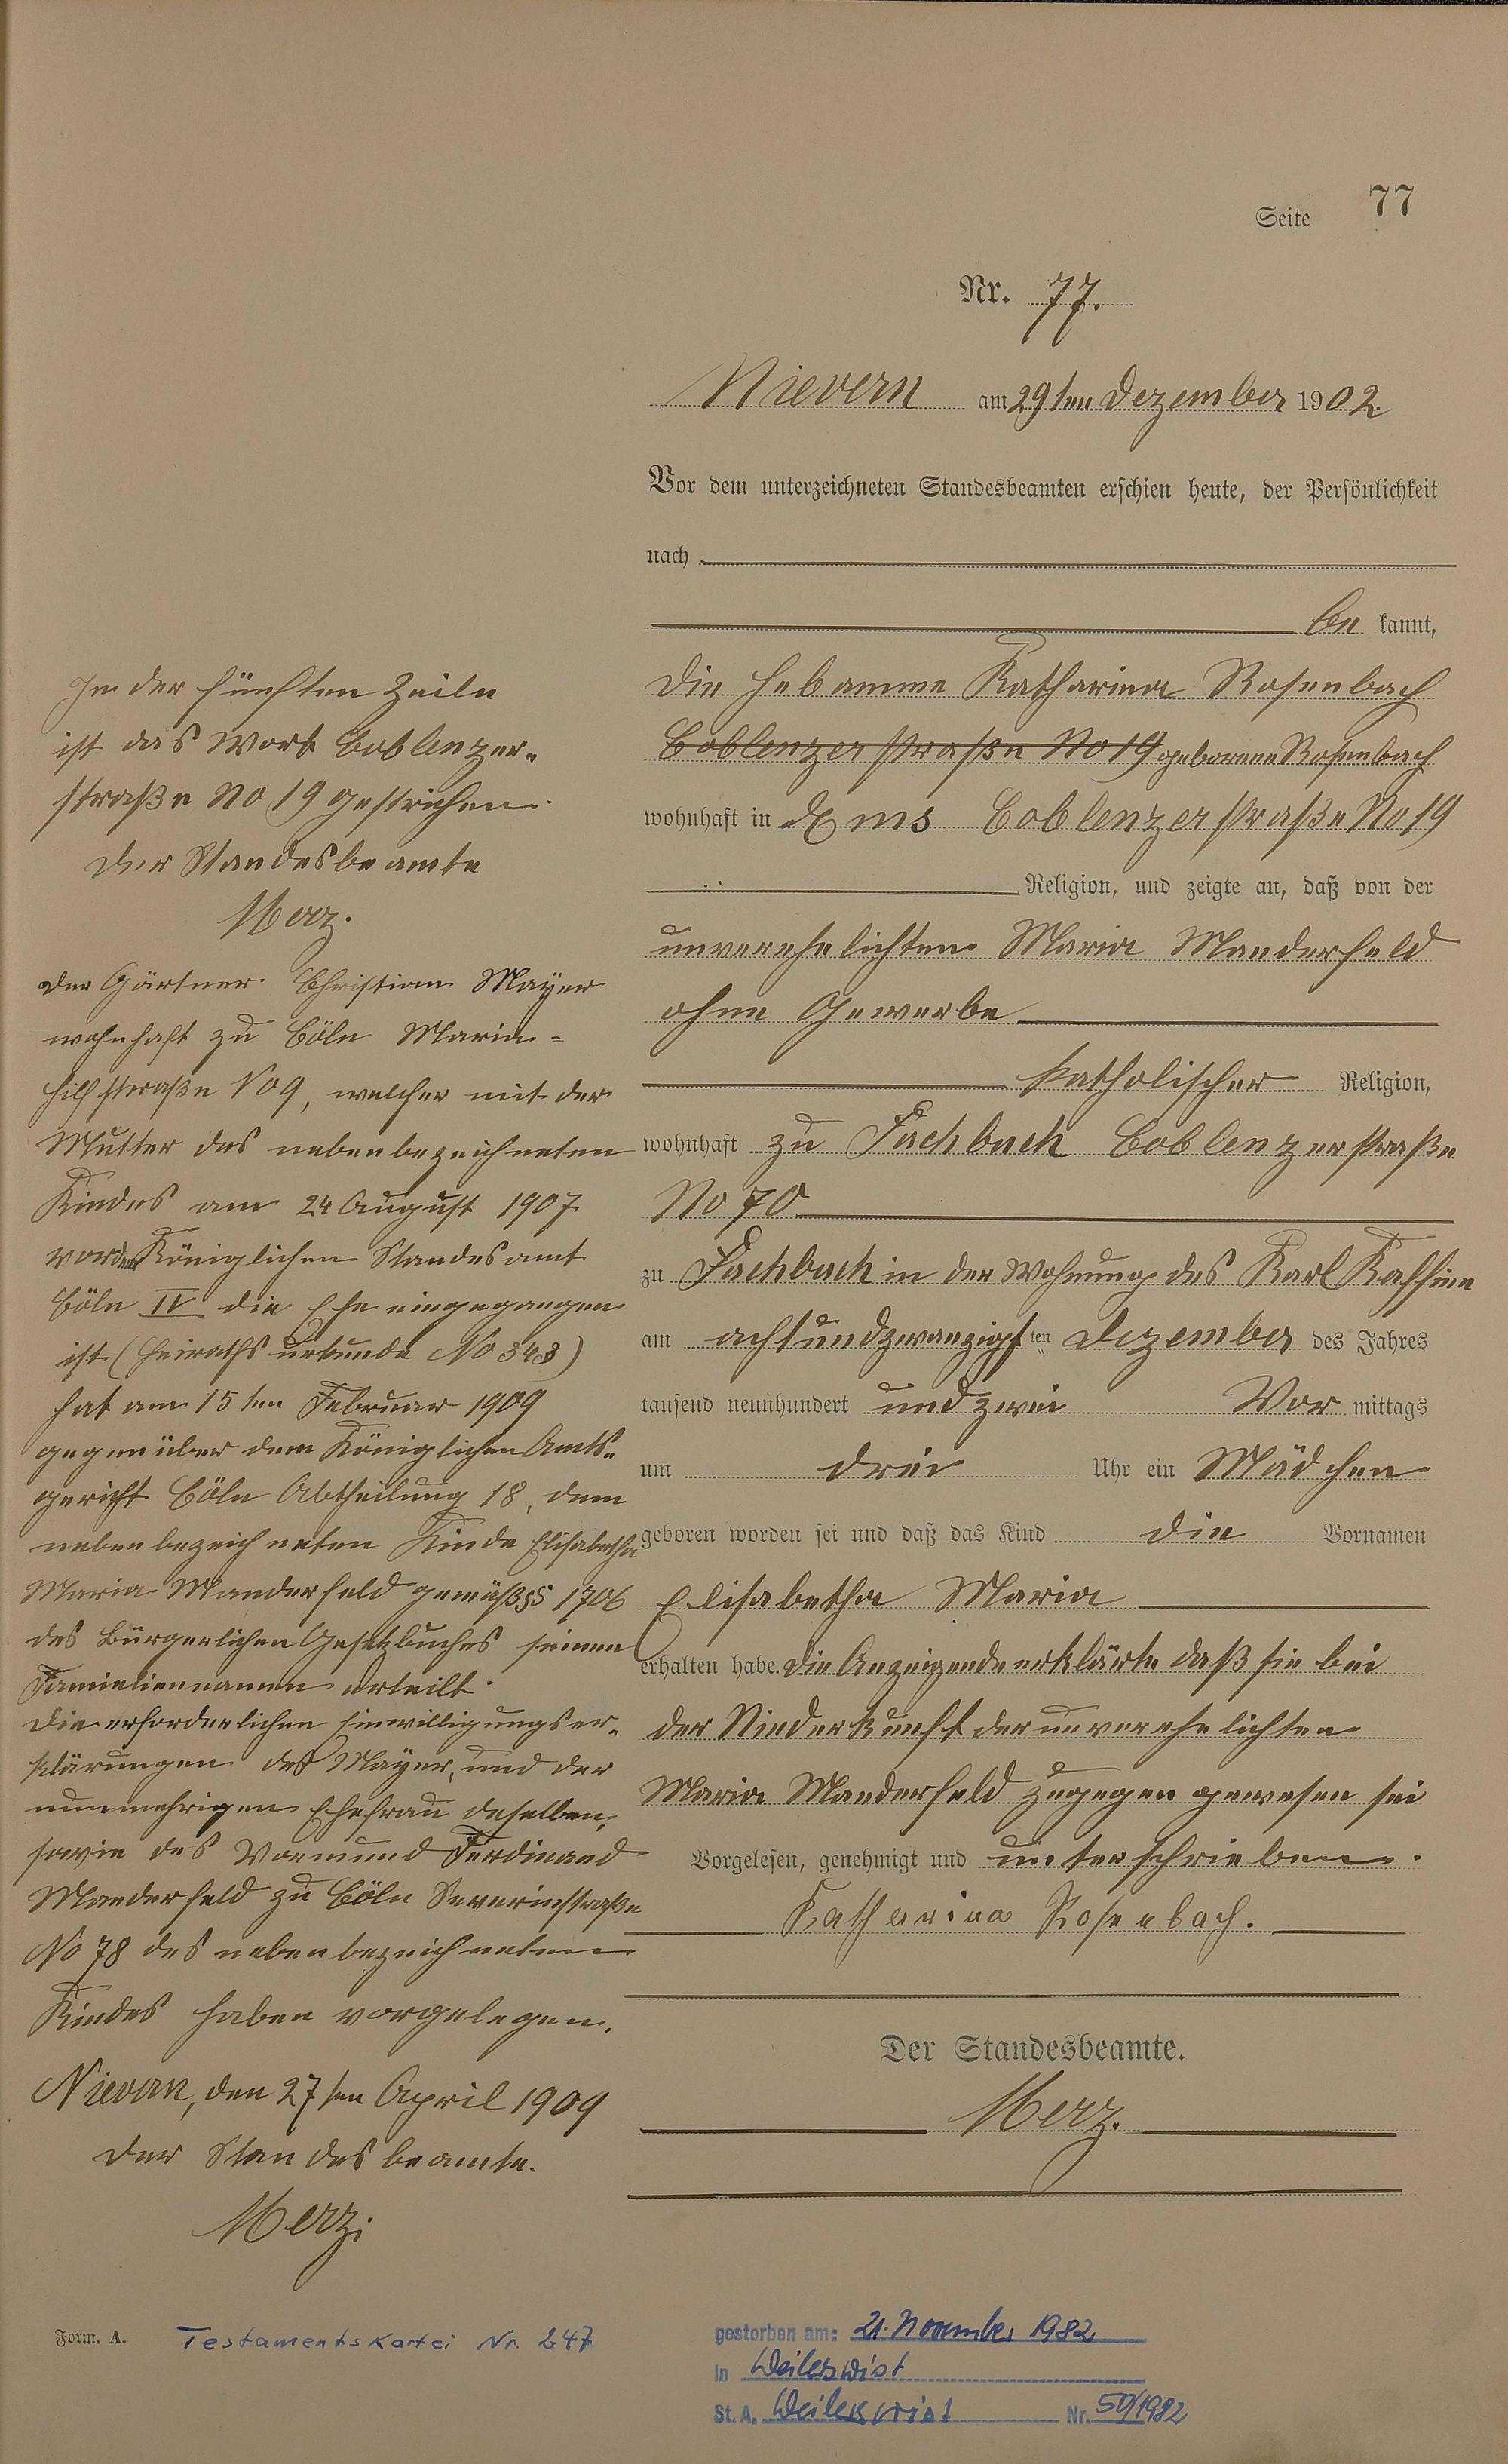 Seite 77
Nr. 77.
Nievern am 29ten Dezember 1902.
Vor dem unterzeichneten Standesbeamten erschien heute, der Persönlichkeit
nach
be kannt,
die Hebamme Katharina Rosenbach
Coblenzerstraße No 19 geborene Rosenbach
wohnhaft in Ems Coblenzerstraße No 19
Religion, und zeigte an, daß von der
unverehelichten Maria Manderfeld
ohne Gewerbe
katholischer Religion,
wohnhaft zu Fachbach Coblenzerstraße
No 70
zu Fachbach in der Wohnung des Karl Kaffine
am achtundzwanzigsten Dezember des Jahres
tausend neunhundert und zwei Vor mittags
um drei Uhr ein Mädchen
geboren worden sei und daß das Kind die Vornamen
Elisabetha Maria
erhalten habe. Die Anzeigende erklärte daß sie bei
der Niederkunft der unverehelichten
Maria Manderfeld zugegen gewesen sei
Vorgelesen, genehmigt und unterschrieben.
Katharina Rosenbach.
Der Standesbeamte.
Merz.
In der fünften Zeile
ist das Wort Coblenzer-
straße No 19 gestrichen.
Der Standesbeamte
Merz.
Der Gärtner Christian Mayer
wohnhaft zu Cöln Maria=
hilfstraße No 9, welcher mit der
Mutter des nebenbezeichneten
Kindes am 24 August 1907
vor dem Königlichen Standesamt
Cöln IV die Ehe eingegangen
ist (Heiraths urkunde No 343)
hat am 15ten Februar 1909
gegenüber dem Königlichen Amts-
gericht Cöln Abtheilung 18, dem
nebenbezeichneten Kinde Elisabetha
Maria Manderfeld gemäß §§ 1706
des Bürgerlichen Gesetzbuches seinen
Familiennamen erteilt.
Die erforderlichen Einwilligungser-
klärungen des Mayer, und der
nunmehrigen Ehefrau deselben,
sowie des Vormund Ferdinand
Manderfeld zu Cöln Severinstraße
No 78 des nebenbezeichneten
Kindes haben vorgelegen.
Nievern, den 27ten April 1909
Der Standesbeamte.
Merz.
Form. A. Testamentskartei Nr. 247
gestorben am: 21. November 1982
in Weilerswist
St. A. Weilerswist Nr. 50/1982